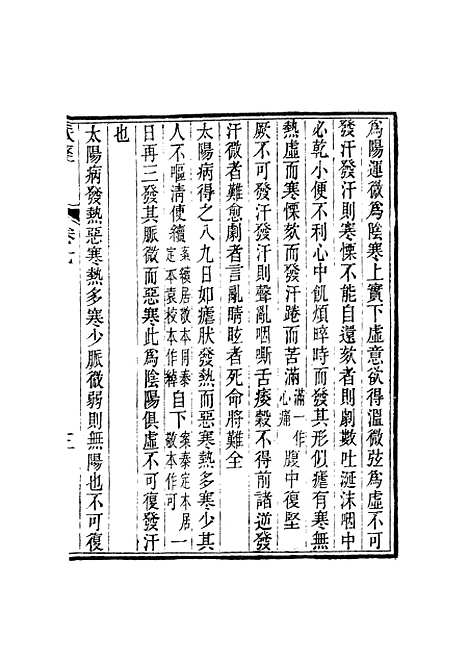 爲陽運微爲陰寒上實下虛意欲得溫微弦爲虛不可
發汗發汗則寒慄不能自還欬者則劇數吐涎沫咽中
必乾小便不利心中飢煩晬時而發其形似瘧有寒無
熱虛而寒慄欬而發汗踡而苦滿滿一作心痛腹中復堅
厥不可發汗發汗則聲亂咽嘶舌痿穀不得前諸逆發
汗微者難愈劇者言亂睛眩者死命將難全
太陽病得之八九日如瘧狀發熱而惡寒熱多寒少其
人不嘔清便續案續居敬本同泰定本袁校本作自下案泰定本居敬本作可一
日再三發其脈微而惡寒此爲陰陽俱虛不可復發汗
也
太陽病發熱惡寒熱多寒少脈微弱則無陽也不可復
三